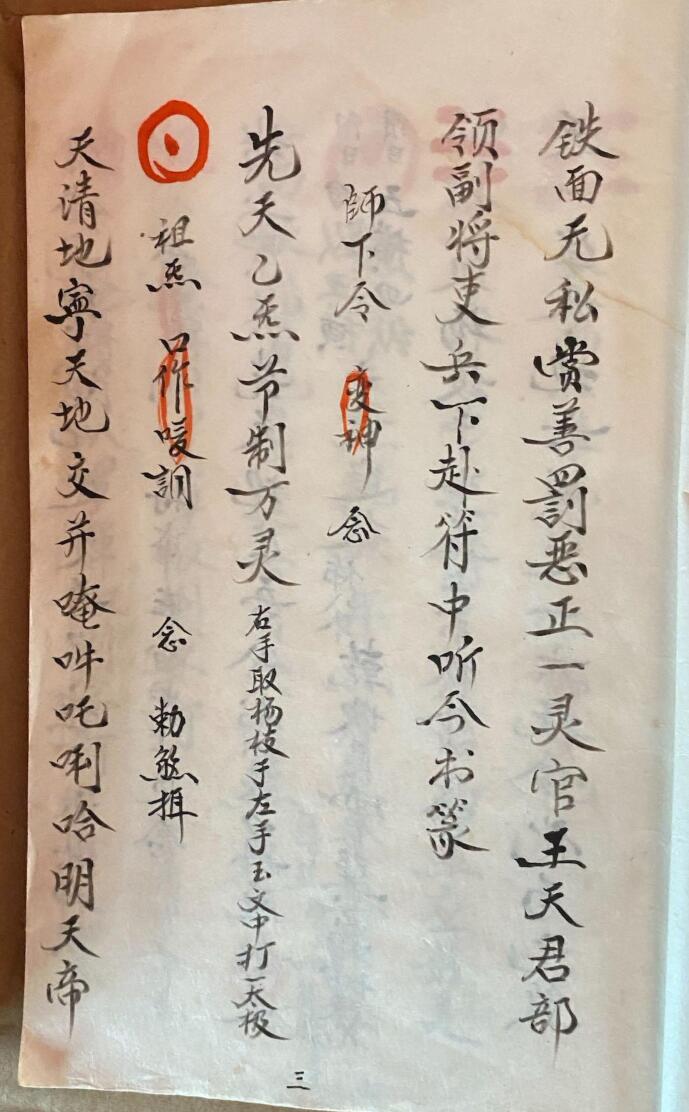 铁面无私赏善罚恶正一灵官王天君部
领副将吏兵下赴符中听令书篆
師下令 变神 念
先天乙炁节制万灵 右手取杨枝于左手玉文中打一太极
祖炁 作嗳 念 勅煞揖
天清地寧天地交并唵吽吒唎哈明天帝
三